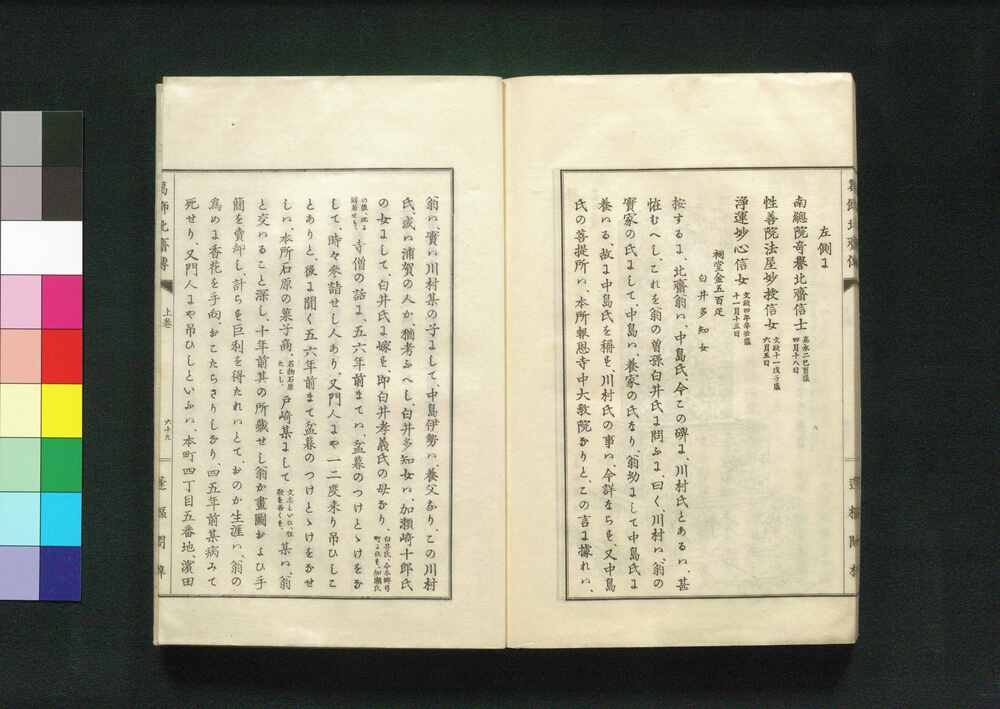 左側に
南總院奇譽北齋信士 嘉永二己酉歳
四月十八日
性善院法屋妙授信女 文政十一戊子歳
六月五日
淨運妙心信女 文政四年辛巳歳
十一月十三日
祠堂金五百疋
白井多知女
按するに、北齋翁ハ、中島氏、今この碑に、川村氏とあるハ、甚
恠むへし、これを翁の曾孫白井氏に問ふに曰く、川村ハ、翁の
實家の氏にして、中島ハ、養家の氏なり、翁幼にして中島氏に
養ハる、故に中島氏を稱す、川村氏の事ハ、今詳ならす、又中島
氏の菩提所ハ、本所報恩寺中大教院なりと、この言に據れハ、
翁ハ、實ハ川村某の子にして、中島伊勢ハ、養父なり、この川村
氏、或ハ浦賀の人か、猶考ふへし、白井多知女ハ、加瀬崎十郎氏
の女にして、白井氏に嫁す、即白井孝義氏の母なり、
寺僧の話に、五六年前まてハ、盆暮のつけとゝけをな
して、時々參詣せし人あり、又門人にや一二度來り吊ひしこ
とありと、後に聞く五六年前まて盆暮のつけとゝけをなせ
しハ、本所石原の菓子商、名物石原
おこし、戸崎某にして 某ハ、翁
と交ハること深し、十年前其の所藏せし翁か畫圖および手
簡を賣却し、計らす巨利を得たれハとて、おのか生涯ハ、翁の
爲めに香花を手向、おこたらさりしなり、四五年前某病みて
死せり、又門人にや吊ひしといふハ、本町四丁目五番地、濱田
葛飾北齋傳
上卷
六十九
蓬樞閣梓